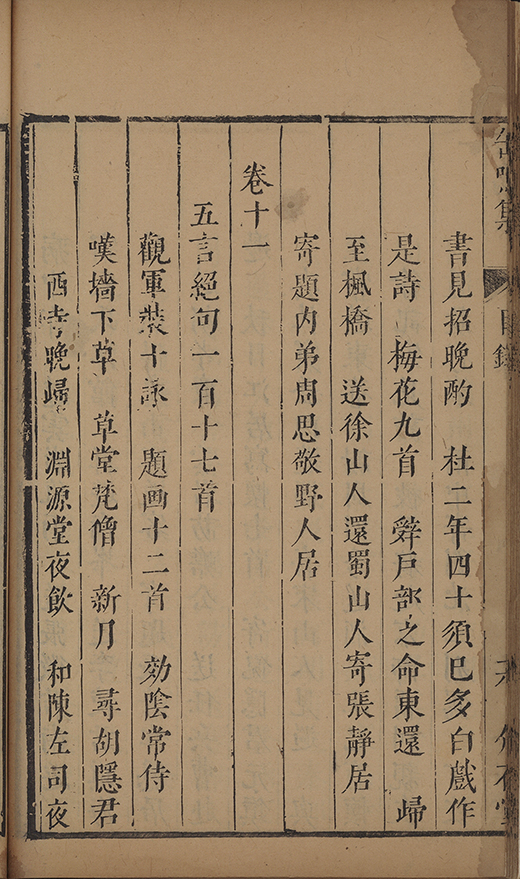 書見招晩酌　杜二年四十須已多白戲作
是詩　梅花九首　辤戸部之命東還　歸
至楓橋　送徐山人還蜀山人寄張靜居
寄題内弟周思敬野人居
卷十一
五言絕句一百十七首
觀軍裝十詠　題画十二首　効陰常侍
嘆墻下草　草堂梵僧　新月　尋胡隱君
西寺晩歸　淵源堂夜飲　和陳左司夜